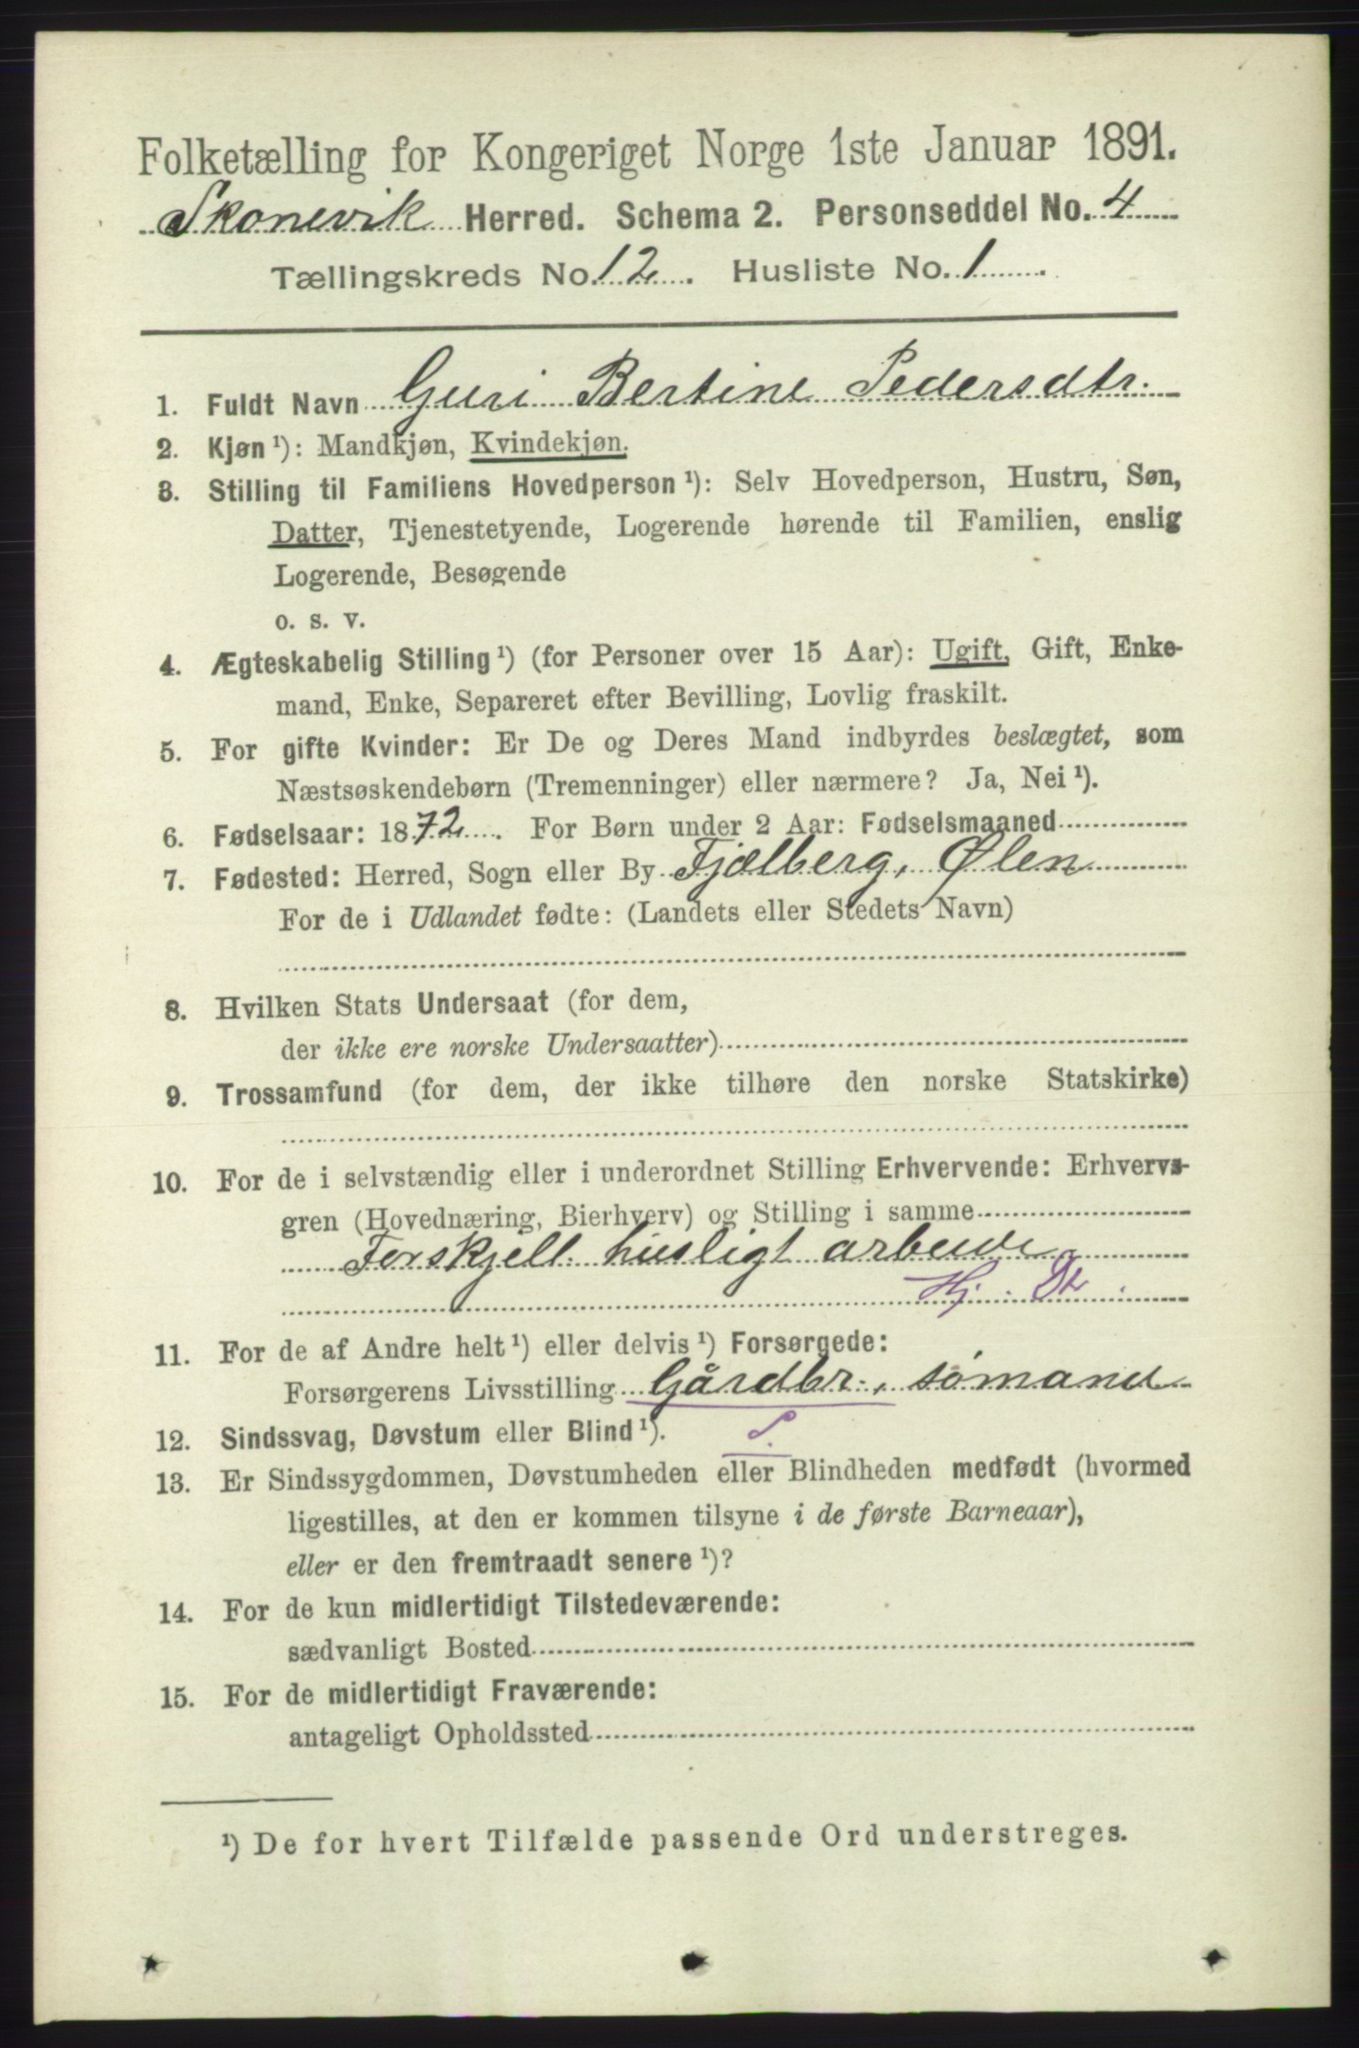 Folketælling for Kongeriget Norge 1ste Januar 1891.
Skonevik Herred. Schema 2. Personseddel No. 4
Tællingskreds No. 12. Husliste No. 1.
1. Fuldt Navn Guri Bertine Pedersdtr.
2. Kjøn ¹): Mandkjøn, Kvindekjøn.
3. Stilling til Familiens Hovedperson ¹): Selv Hovedperson, Hustru, Søn,
Datter, Tjenestetyende, Logerende hørende til Familien, enslig
Logerende, Besøgende
o. s. v.
4. Ægteskabelig Stilling ¹) (for Personer over 15 Aar): Ugift, Gift, Enke-
mand, Enke, Separeret efter Bevilling, Lovlig fraskilt.
5. For gifte Kvinder: Er De og Deres Mand indbyrdes beslægtet, som
Næstsøskendebørn (Tremenninger) eller nærmere? Ja, Nei ¹).
6. Fødselsaar: 1872. For Børn under 2 Aar: Fødselsmaaned
7. Fødested: Herred, Sogn eller By Fjælberg, Ølen
For de i Udlandet fødte: (Landets eller Stedets Navn)
8. Hvilken Stats Undersaat (for dem,
der ikke ere norske Undersaatter)
9. Trossamfund (for dem, der ikke tilhøre den norske Statskirke)
10. For de i selvstændig eller i underordnet Stilling Erhvervende: Erhvervs-
gren (Hovednæring, Bierhverv) og Stilling i samme
Forskjell. husligt arbeide
Hj. Dt.
11. For de af Andre helt ¹) eller delvis ¹) Forsørgede:
Forsørgerens Livsstilling Gårdbr., sømand
12. Sindssvag, Døvstum eller Blind ¹).
13. Er Sindssygdommen, Døvstumheden eller Blindheden medfødt (hvormed
ligestilles, at den er kommen tilsyne i de første Barneaar),
eller er den fremtraadt senere ¹)?
14. For de kun midlertidigt Tilstedeværende:
sædvanligt Bosted
15. For de midlertidigt Fraværende:
antageligt Opholdssted
¹) De for hvert Tilfælde passende Ord understreges.